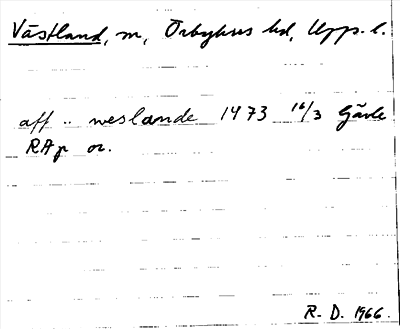 Västland, sn, Örbyhus hd, Upps. l.
aff .. weslande 1473 16/3 Gävle
RAp or.
R. D. 1966.